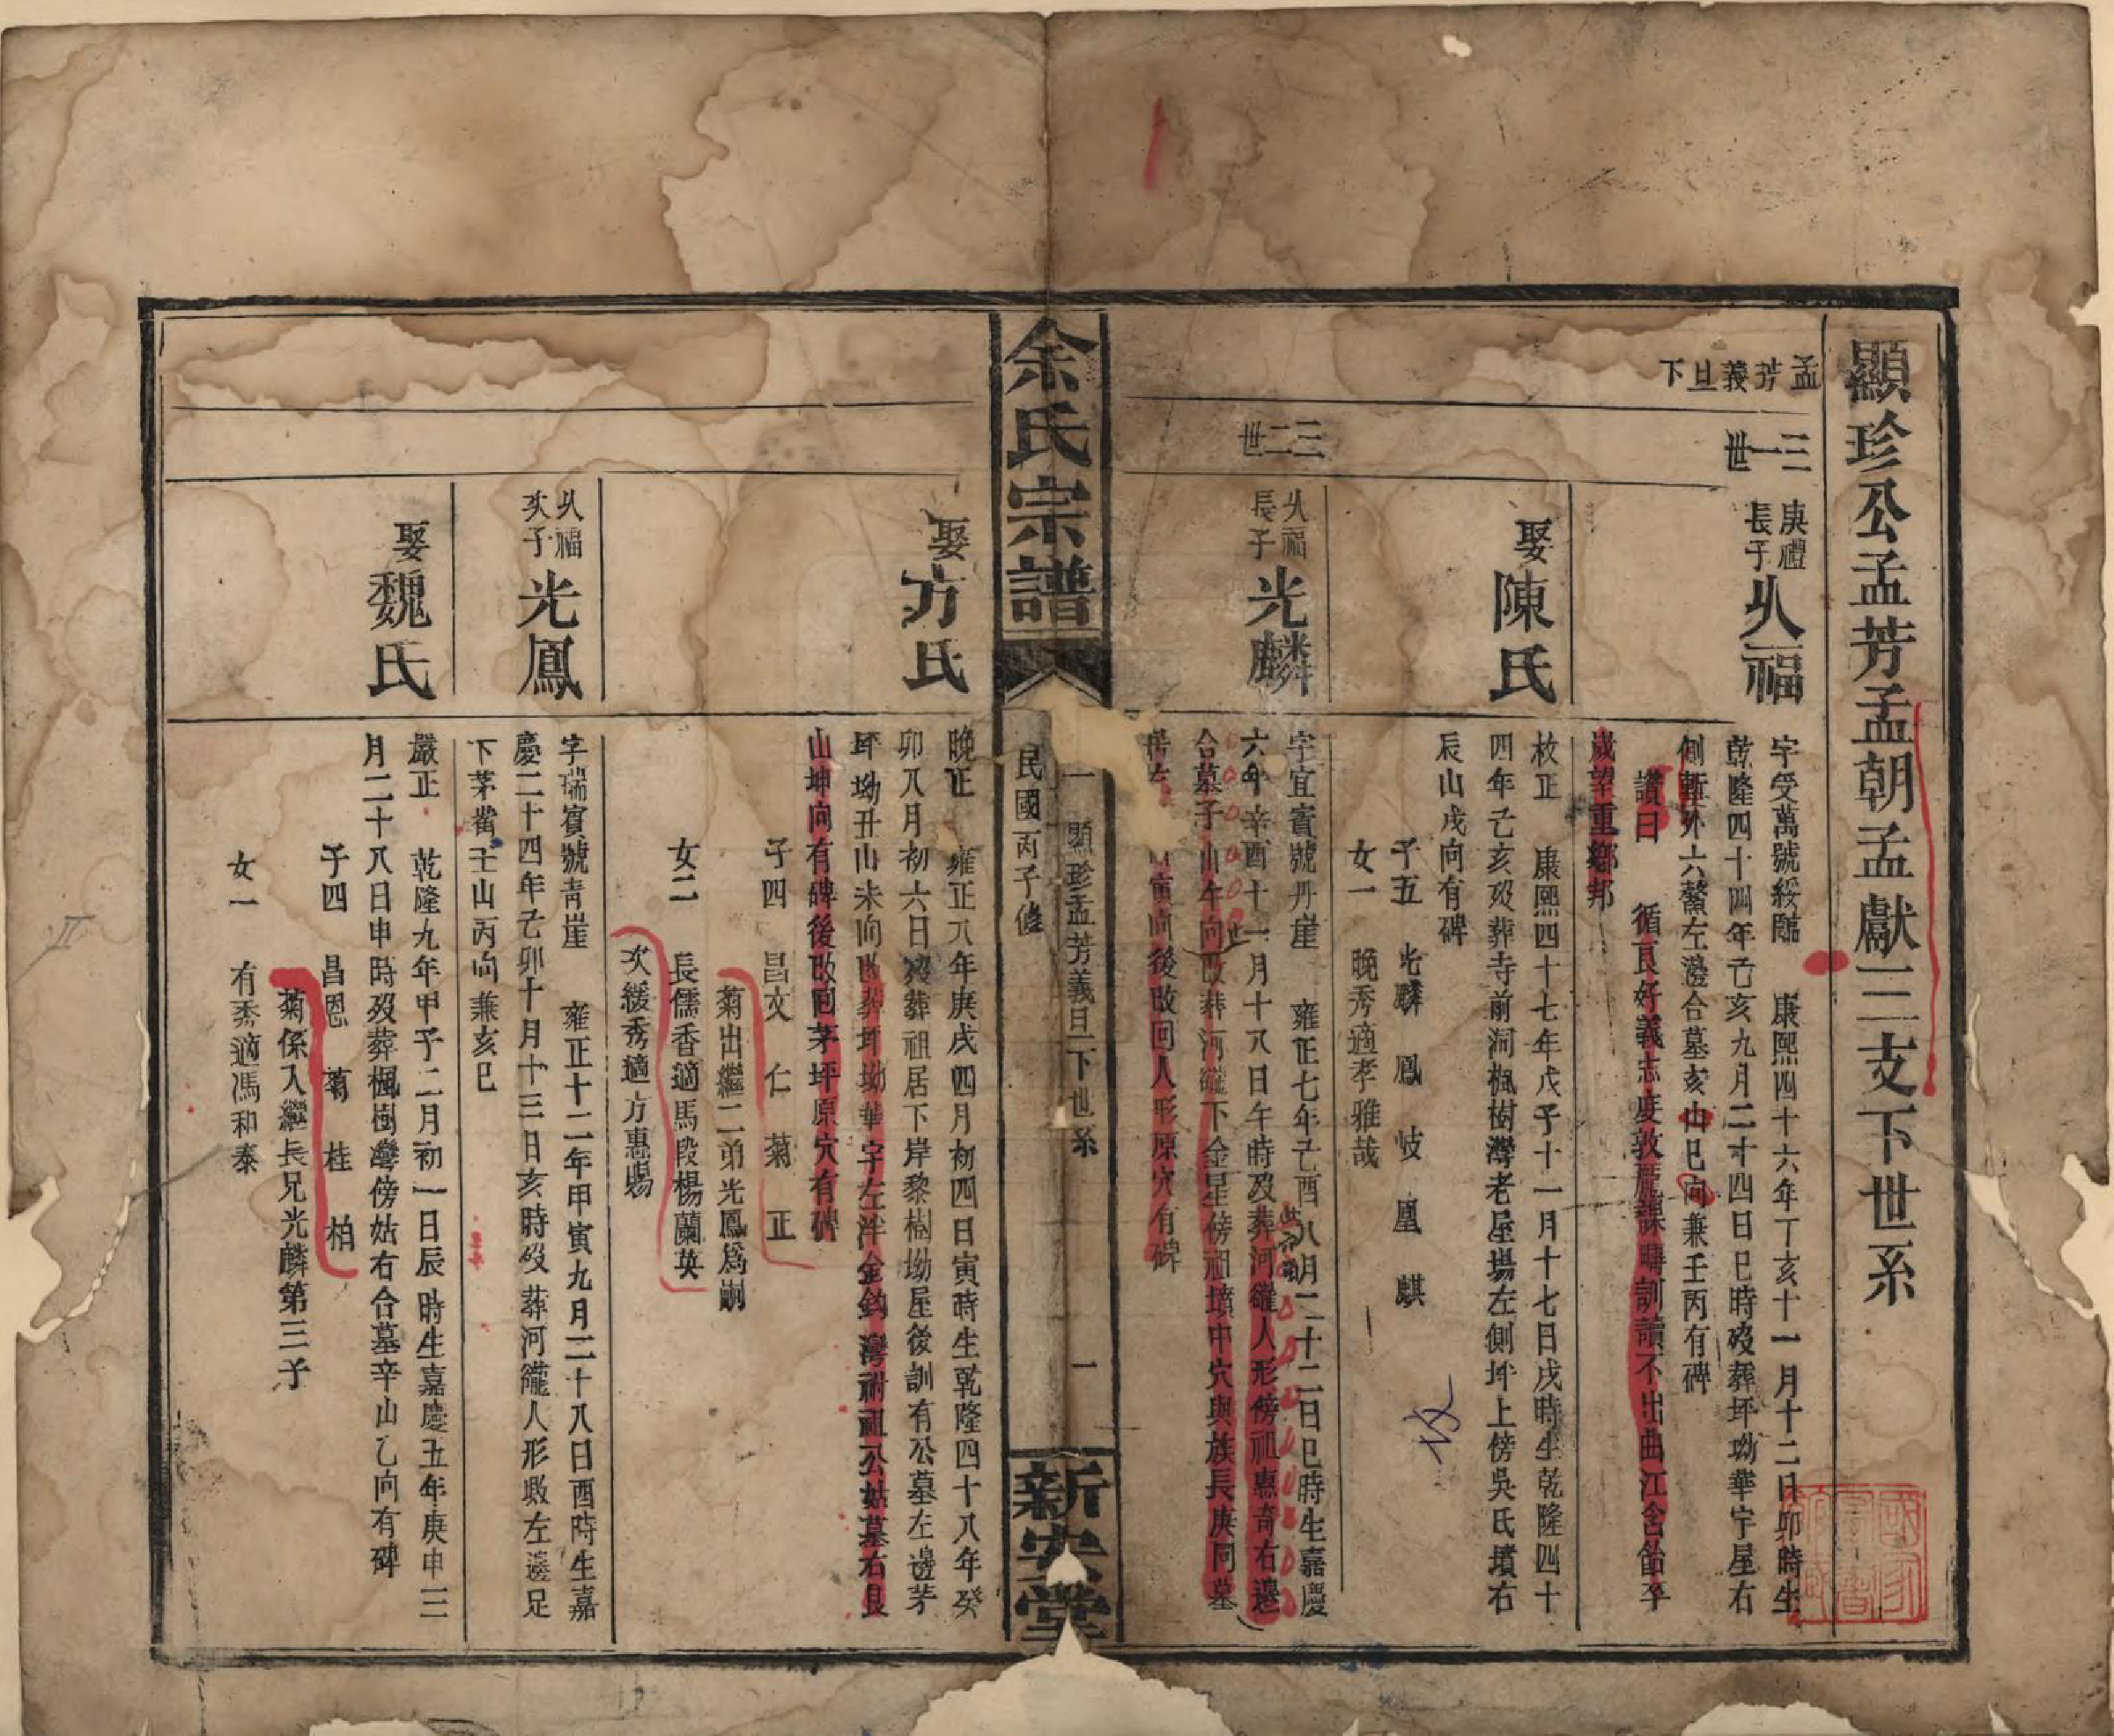 顯珍公孟芳孟朝孟獻三支下世系
孟芳義旦下
三一世
庚禮
長子
㸚福
字受萬號綏臨 康熙四十六年丁亥十一月十二日卯時生
乾隆四十四年己亥九月二十四日巳時歿葬坪坳華字屋右
側塹外六鰲左邊合墓亥山巳向兼壬丙有碑
讚曰 循良好義志度敦龐課疇訓讀不出曲江含飴卒
歲望重鄉邦
娶陳氏
枚正 康熙四十七年戊子十一月十七日戌時生乾隆四十
四年乙亥歿葬寺前洞楓樹灣老屋場左側坪上傍吳氏墳右
辰山戌向有碑
子五 光麟 鳳 岐 凰 麒
女一 晚秀適李雅哉
三二世
㸚福
長子
光麟
字宜賓號丹崖 雍正七年己酉八月二十二日巳時生嘉慶
六年辛酉十一月十八日午時歿葬河䆫人形傍祖惠奇右邊
合墓子山午向改葬河䆫下金星傍祖墳中穴與族長庚同墓
寅向後改回人形原穴有碑
余氏宗譜
一 顯珍孟芳義旦下世系
民國丙子修
一
新安堂
娶方氏
晚正 雍正八年庚戌四月初四日寅時生乾隆四十八年癸
卯八月初六日歿葬祖居下岸黎樹坳屋後訓有公墓左邊茅
坪坳丑山未向改葬坪坳華字左泮金鈎灣祔祖公姑墓右艮
山坤向有碑後改回茅坪原穴有碑
子四 昌文 仁 菊 正
菊出繼二弟光鳳爲嗣
女二 長儒香適馬段楊蘭英
次緩秀適方惠賜
㸚福
次子
光鳳
字瑞賓號青崖 雍正十二年甲寅九月二十八日酉時生嘉
慶二十四年己卯十月十三日亥時歿葬河䆫人形墩左邊足
下茅畬壬山丙向兼亥巳
娶魏氏
嚴正 乾隆九年甲子二月初一日辰時生嘉慶五年庚申三
月二十八日申時歿葬楓樹灣傍姑右合墓辛山乙向有碑
子四 昌恩 菊 桂 柏
菊係入繼長兄光麟第三子
女一 有秀適馮和泰